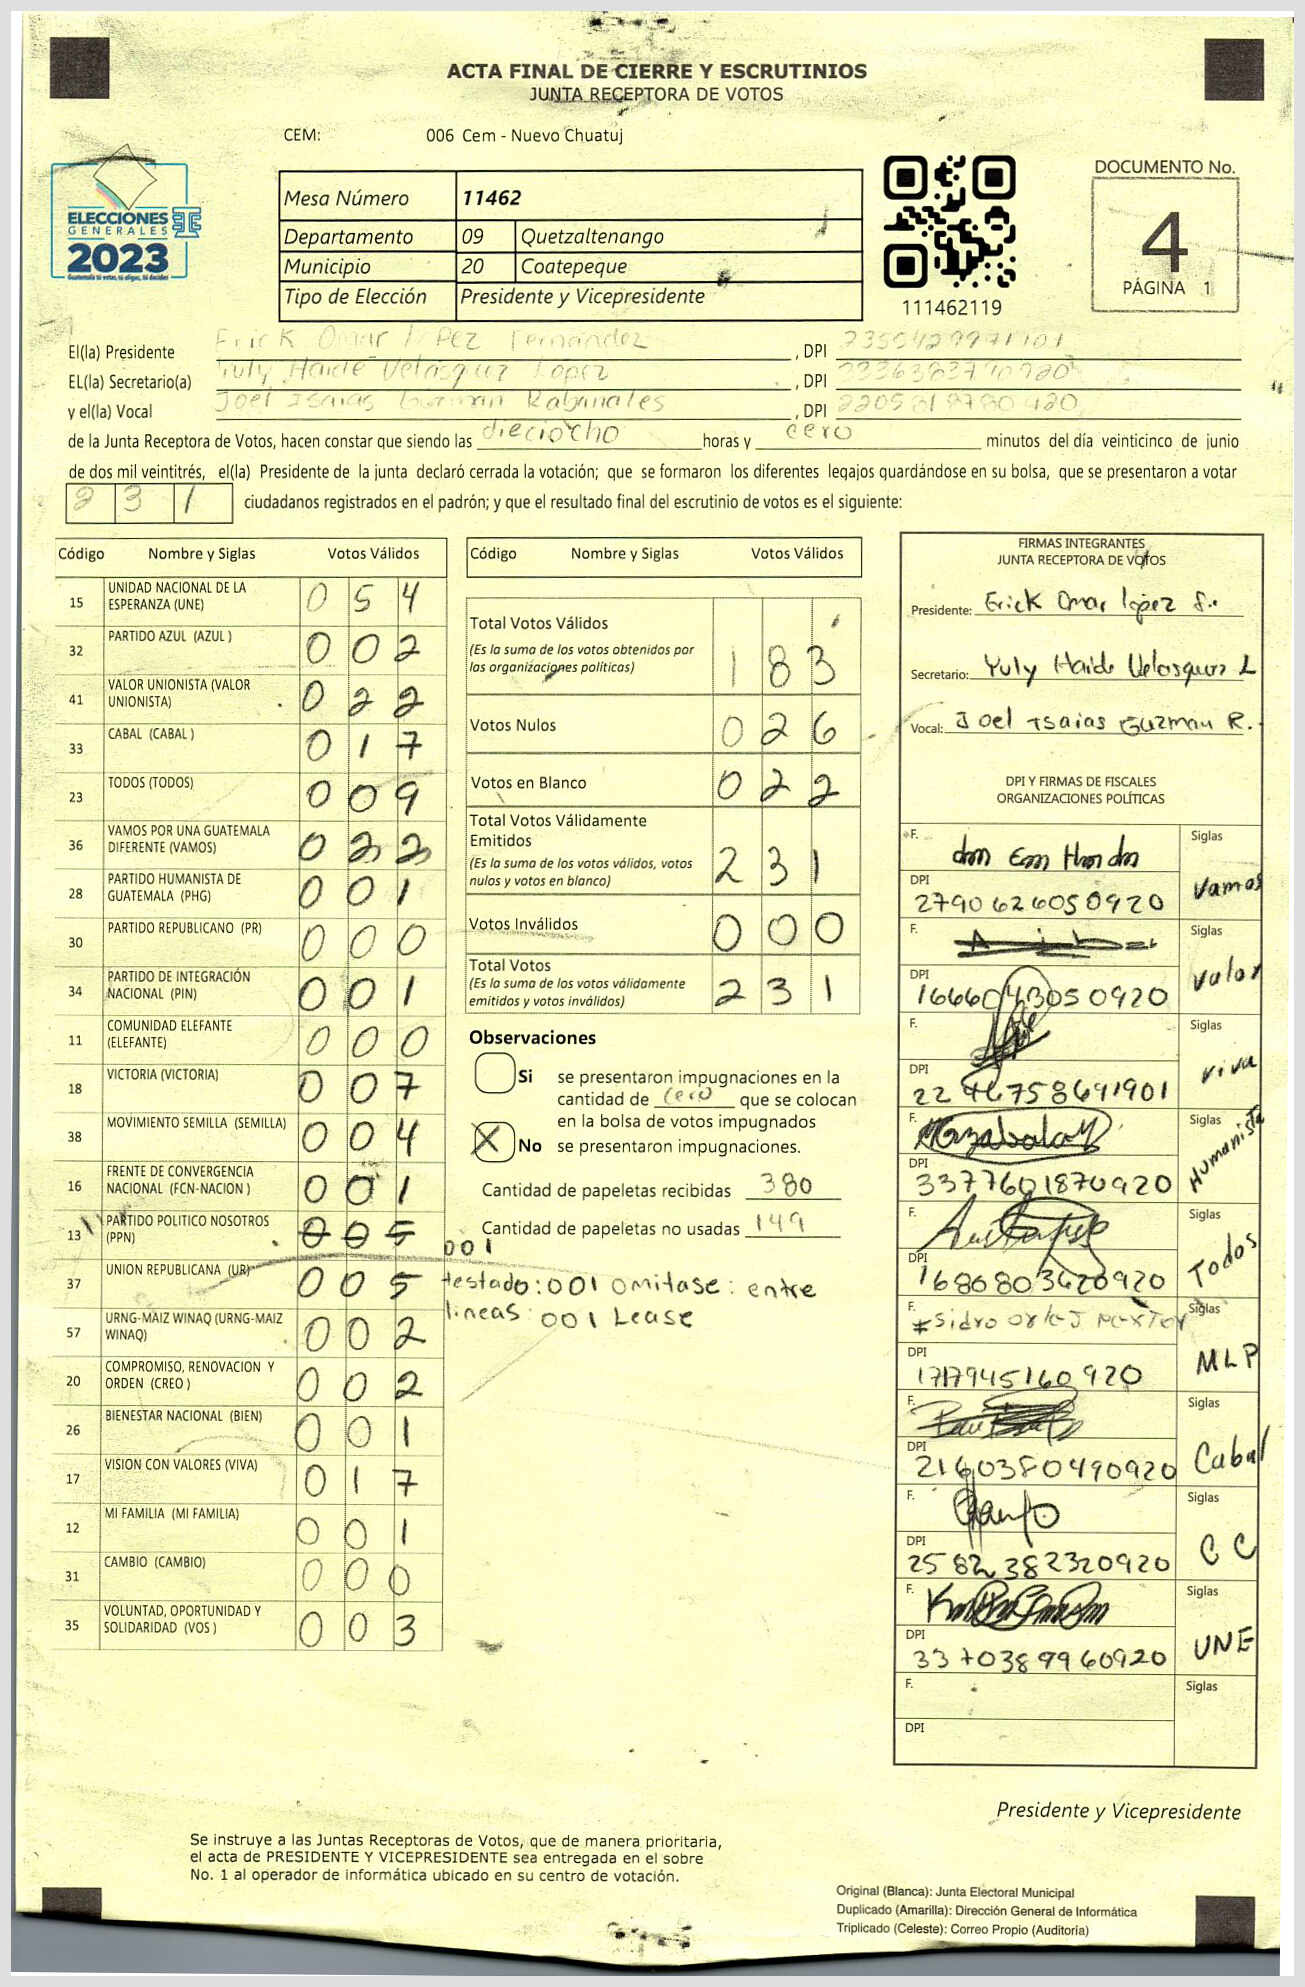 ACTA FINAL DE CIERRE Y ESCRUTINIOS
JUNTA RECEPTORA DE VOTOS
CEM: 006 Cem - Nuevo Chuatuj
ELECCIONES
GENERALES
2023
Guatemala tú votas, tú eliges, tú decides
Mesa Número 11462
Departamento 09 Quetzaltenango
Municipio 20 Coatepeque
Tipo de Elección Presidente y Vicepresidente
111462119
DOCUMENTO No.
4
PÁGINA 1
El(la) Presidente Erick Omar López Fernández , DPI
EL(la) Secretario(a) Yuly Haide Velásquez López , DPI
y el(la) Vocal Joel Isaias Guzman Rabanales , DPI
de la Junta Receptora de Votos, hacen constar que siendo las dieciocho horas y cero minutos del día veinticinco de junio
de dos mil veintitrés, el(la) Presidente de la junta declaró cerrada la votación; que se formaron los diferentes legajos guardándose en su bolsa, que se presentaron a votar
231 ciudadanos registrados en el padrón; y que el resultado final del escrutinio de votos es el siguiente:
Código Nombre y Siglas Votos Válidos
15 UNIDAD NACIONAL DE LA ESPERANZA (UNE) 054
32 PARTIDO AZUL (AZUL ) 002
41 VALOR UNIONISTA (VALOR UNIONISTA) 022
33 CABAL (CABAL ) 017
23 TODOS (TODOS) 009
36 VAMOS POR UNA GUATEMALA DIFERENTE (VAMOS) 022
28 PARTIDO HUMANISTA DE GUATEMALA (PHG) 001
30 PARTIDO REPUBLICANO (PR) 000
34 PARTIDO DE INTEGRACIÓN NACIONAL (PIN) 001
11 COMUNIDAD ELEFANTE (ELEFANTE) 000
18 VICTORIA (VICTORIA) 007
38 MOVIMIENTO SEMILLA (SEMILLA) 004
16 FRENTE DE CONVERGENCIA NACIONAL (FCN-NACION ) 001
13 PARTIDO POLITICO NOSOTROS (PPN) 005 001
37 UNION REPUBLICANA (UR) 005
57 URNG-MAIZ WINAQ (URNG-MAIZ WINAQ) 002
20 COMPROMISO, RENOVACION Y ORDEN (CREO ) 002
26 BIENESTAR NACIONAL (BIEN) 001
17 VISION CON VALORES (VIVA) 017
12 MI FAMILIA (MI FAMILIA) 001
31 CAMBIO (CAMBIO) 000
35 VOLUNTAD, OPORTUNIDAD Y SOLIDARIDAD (VOS ) 003
Código Nombre y Siglas Votos Válidos
Total Votos Válidos 183
(Es la suma de los votos obtenidos por
las organizaciones políticas)
Votos Nulos 026
Votos en Blanco 022
Total Votos Válidamente
Emitidos 231
(Es la suma de los votos válidos, votos
nulos y votos en blanco)
Votos Inválidos 000
Total Votos 231
(Es la suma de los votos válidamente
emitidos y votos inválidos)
Observaciones
Si se presentaron impugnaciones en la
cantidad de cero que se colocan
en la bolsa de votos impugnados
X No se presentaron impugnaciones.
Cantidad de papeletas recibidas 380
Cantidad de papeletas no usadas 149
testado: 001 omitase: entre
lineas: 001 Lease
FIRMAS INTEGRANTES
JUNTA RECEPTORA DE VOTOS
Presidente: Erick Omar lopez F.
Secretario: Yuly Haide Velasquez L
Vocal: Joel Isaias Guzman R.
DPI Y FIRMAS DE FISCALES
ORGANIZACIONES POLÍTICAS
F. Siglas
DPI 2790626050920 Vamos
F. Siglas
DPI 1666043050920 valor
F. Siglas
DPI 2246758691901 viva
F. Siglas
DPI 3377601870920 Humanista
F. Siglas
DPI 1680803620920 Todos
F. Siglas
DPI 1717945160920 MLP
F. Siglas
DPI 2160380490920 Cabal
F. Siglas
DPI 2582382320920 CC
F. Siglas
DPI 3370389960920 UNE
F. Siglas
DPI
Presidente y Vicepresidente
Se instruye a las Juntas Receptoras de Votos, que de manera prioritaria,
el acta de PRESIDENTE Y VICEPRESIDENTE sea entregada en el sobre
No. 1 al operador de informática ubicado en su centro de votación.
Original (Blanca): Junta Electoral Municipal
Duplicado (Amarilla): Dirección General de Informática
Triplicado (Celeste): Correo Propio (Auditoría)